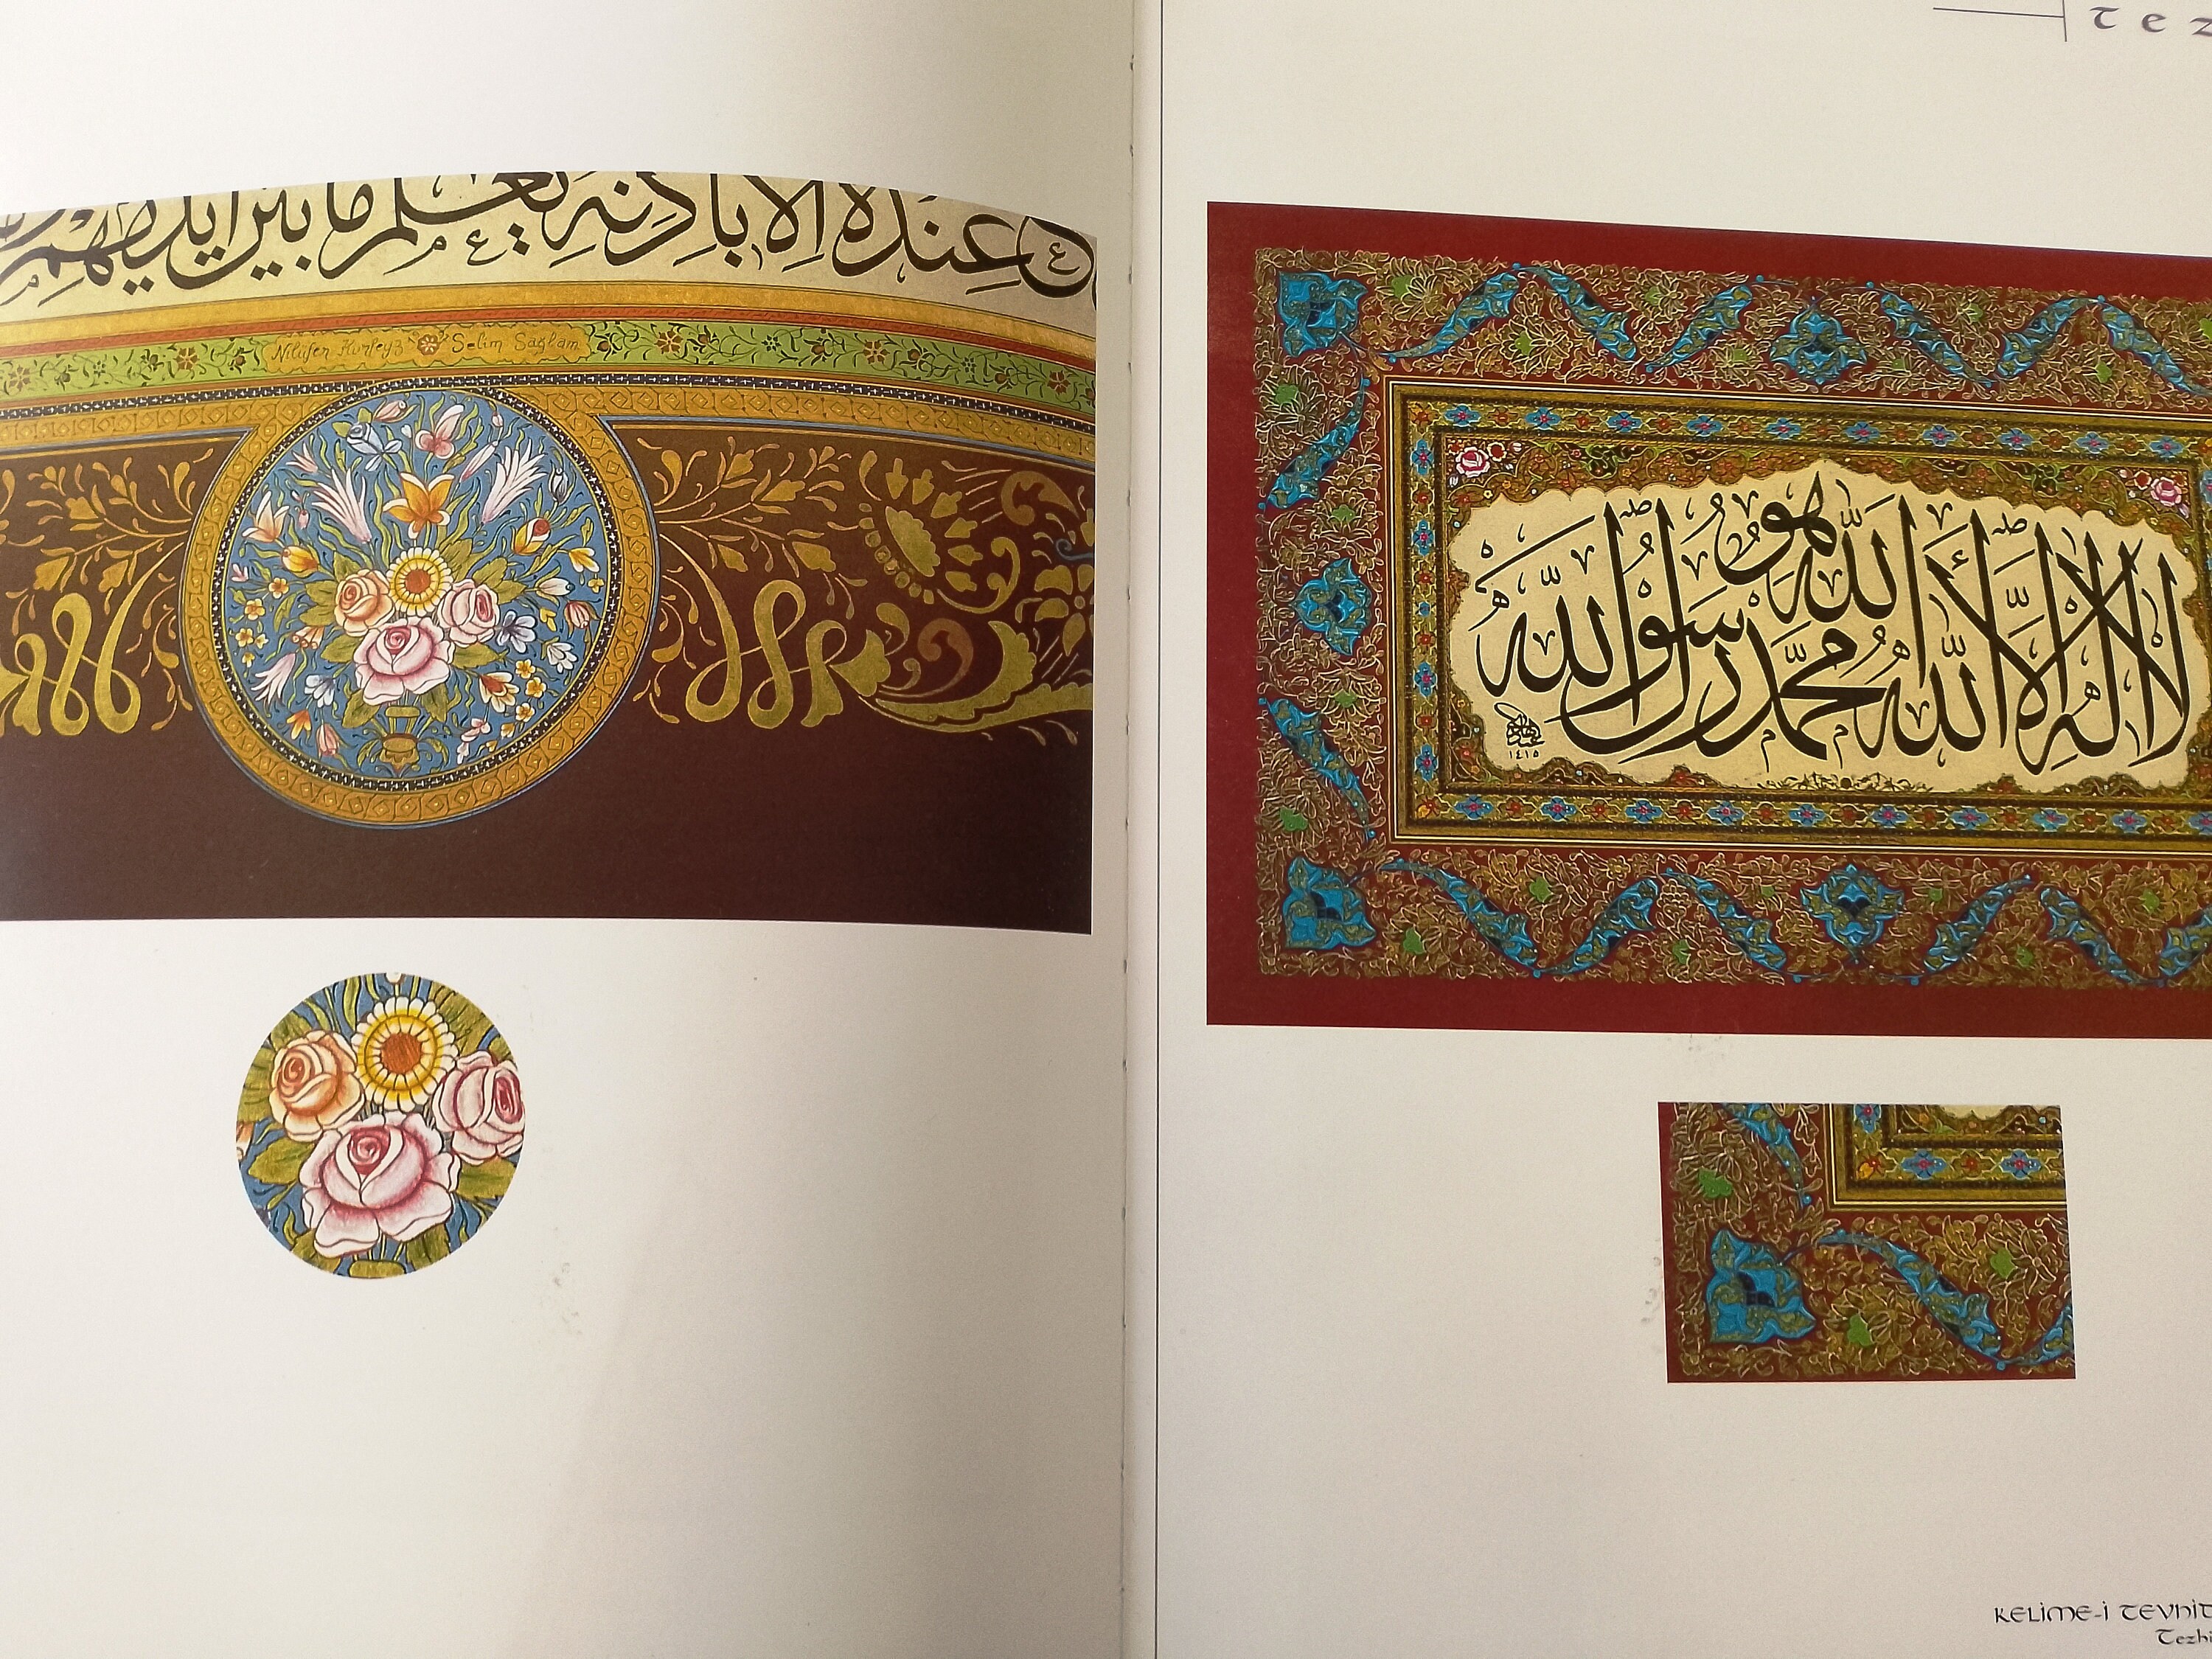 عِنْدَهُ اِلَّا بِاِذْنِهِ يَعْلَمُ مَا بَيْنَ اَيْدِيهِمْ
Nilüfer Kurfeyz Selim Sağlam
Tez
لا اله الا الله محمد رسول الله
١٤١٥
KELİME-İ TEVHİT
Tezhi